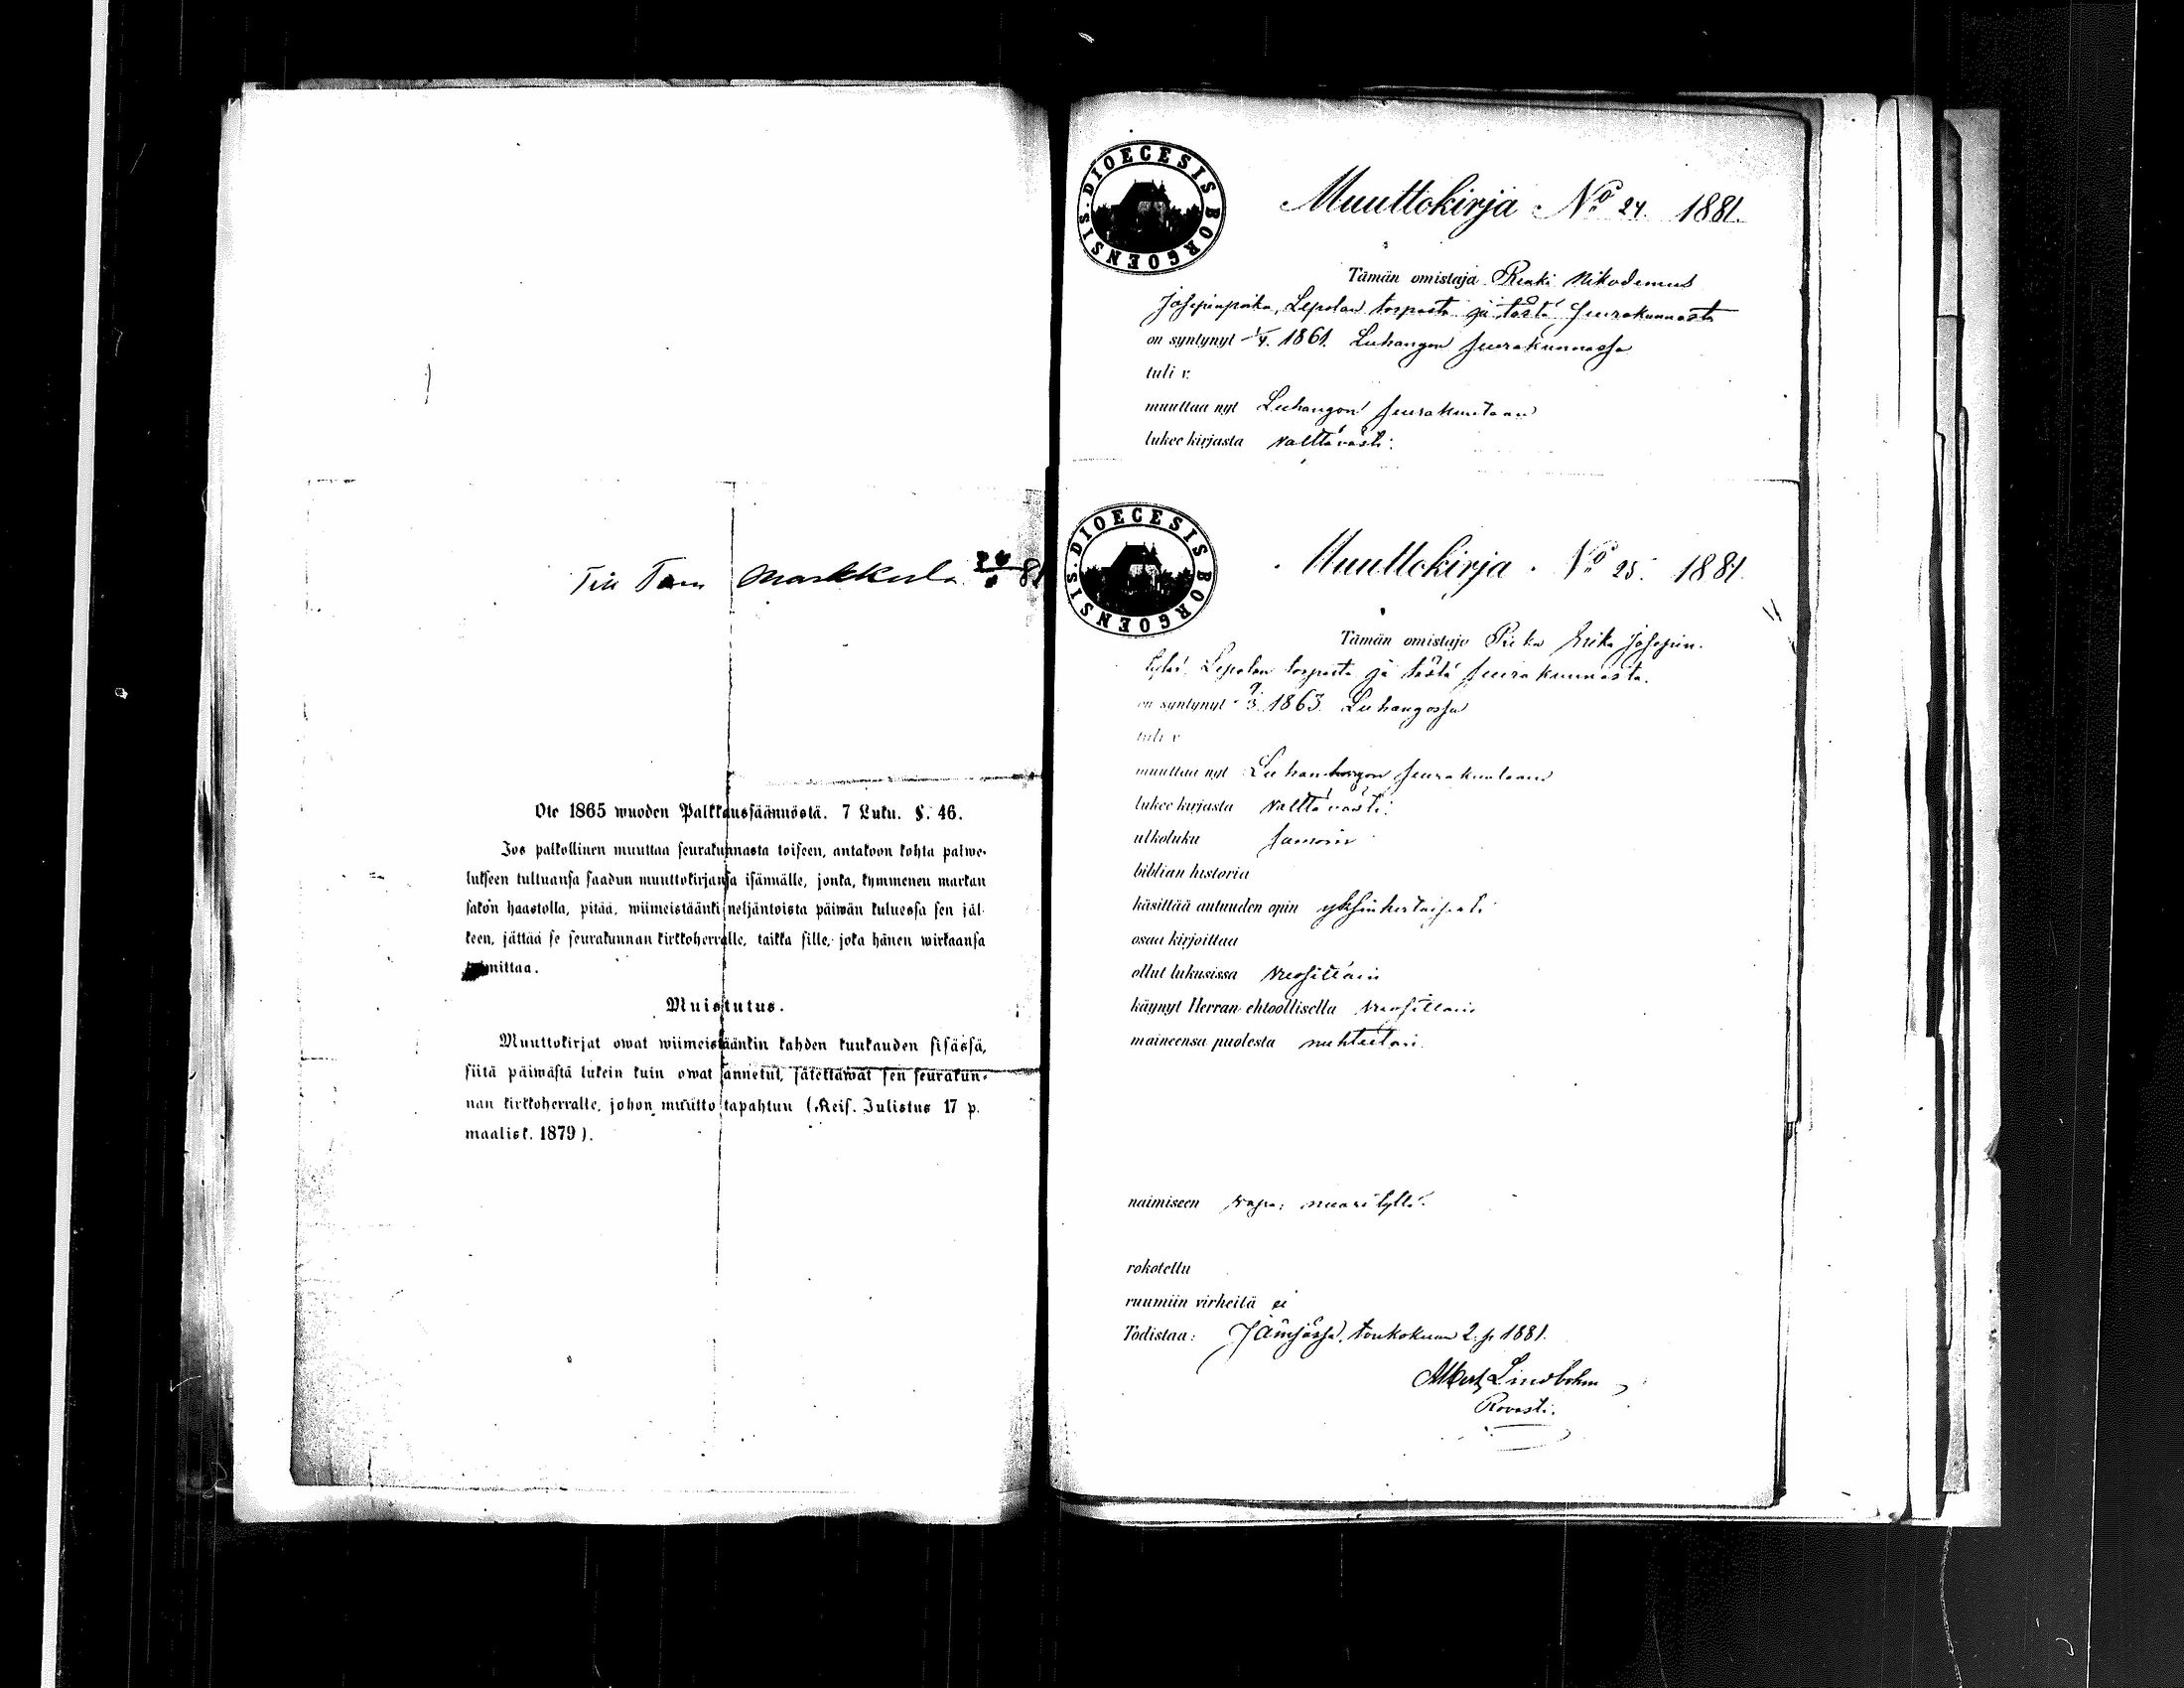 Till Tam Markkula
Ote 1865 wuoden Palkkaussäännöstä. 7 Luku. §. 46.
Jos palkollinen muuttaa seurakunnasta toiseen, antakoon kohta palwe-
lukseen tultuansa saadun muuttokirjansa isännälle, jonka, kymmenen markan
sakon haastolla, pitää, wiimeistäänki neljäntoista päiwän kuluessa sen jäl-
keen, jättää se seurakunnan kirkkoherralle, taikka sille, joka hänen wirkaansa
toimittaa.
Muistutus.
Muuttokirjat owat wiimeistäänkin kahden kuukauden sisässä,
siitä päiwästä lukein kuin owat annetut, jätettäwät sen seurakun-
nan kirkkoherralle, johon muutto tapahtuu (Keis. Julistus 17 p.
maalisk. 1879).
DIOECESIS BORGOENSIS
Muuttokirja No 24. 1881.
Tämän omistaja Renki Nikodemus
Josepinpoika, Lepolan torpasta ja tästä seurakunnasta
on syntynyt 1861. Luhangon seurakunnassa
tuli v.
muuttaa nyt Luhangon seurakuntaan
lukee kirjasta välttävästi.
DIOECESIS BORGOENSIS
Muuttokirja No 25. 1881.
Tämän omistaja Piika Erika Josepin-
tytär, Lepolan torpasta ja tästä seurakunnasta.
on syntynyt 9/3 1863. Luhangossa
tuli v
muuttaa nyt Luhangon seurakuntaan
lukee kirjasta välttävästi.
ulkoluku samoin
biblian historia
käsittää autuuden opin yksinkertaisesti
osaa kirjoittaa
ollut lukusissa vuosittain
käynyt Herran ehtoollisella vuosittain
maineensa puolesta nuhteeton.
naimiseen vapaa; nuori tyttö.
rokotettu
ruumiin virheitä ei
Todistaa: Jämsässä, toukokuun 2. p. 1881.
Albert Lindbohm
Rovasti.